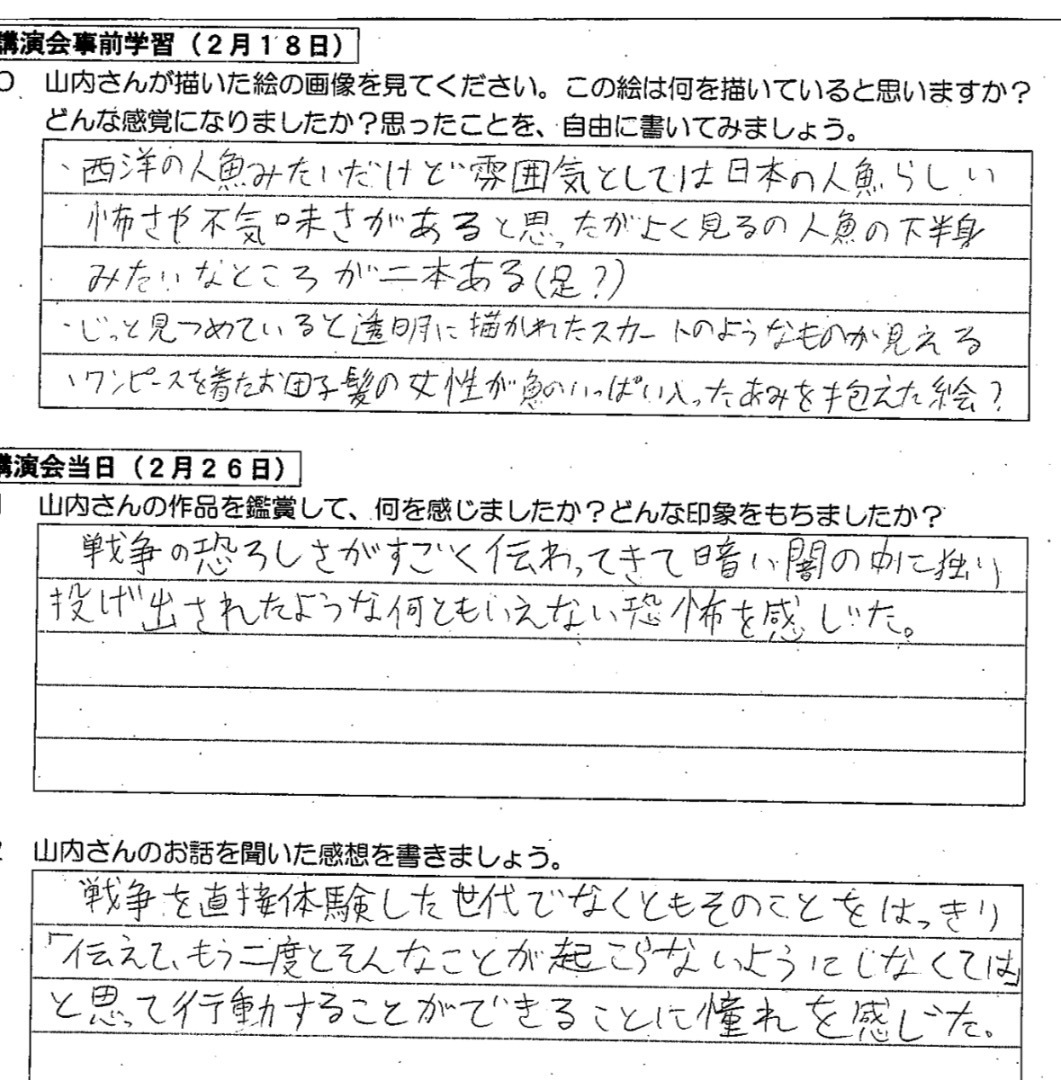 講演会事前学習（２月１８日）
○ 山内さんが描いた絵の画像を見てください。この絵は何を描いていると思いますか？
どんな感覚になりましたか？思ったことを、自由に書いてみましょう。
・西洋の人魚みたいだけど雰囲気としては日本の人魚らしい
怖さや不気味さがあると思ったがよく見るの人魚の下半身
みたいなところが二本ある(足？)
・じっと見つめていると透明に描かれたスカートのようなものが見える
・ワンピースを着たお団子髪の女性が魚のいっぱい入ったあみを抱えた絵？
講演会当日（２月２６日）
山内さんの作品を鑑賞して、何を感じましたか？どんな印象をもちましたか？
戦争の恐ろしさがすごく伝わってきて暗い闇の中に独り
投げ出されたような何ともいえない恐怖を感じた。
山内さんのお話を聞いた感想を書きましょう。
戦争を直接体験した世代でなくともそのことをはっきり
「伝えて、もう二度とそんなことが起こらないようにしなくては」
と思って行動することができることに憧れを感じた。